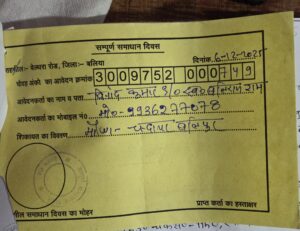 सम्पूर्ण समाधान दिवस
तहसील:- बेल्थरा रोड, जिला:- बलिया
दिनांक. 6-12-2025
चौदह अंको का आवेदन क्रमांक 3009752 000749
आवेदनकर्ता का नाम व पता विनोद कुमार S/O राम
आवेदनकर्ता का मोबाईल न० मो० 9936277078
शिकायत का विवरण मौजा-
सील समाधान दिवस का मोहर
प्राप्त कर्ता का हस्ताक्षर